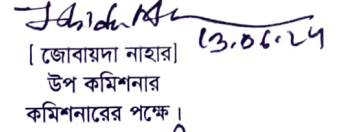 13.06.24
[ জোবায়দা নাহার]
উপ কমিশনার
কমিশনারের পক্ষে।